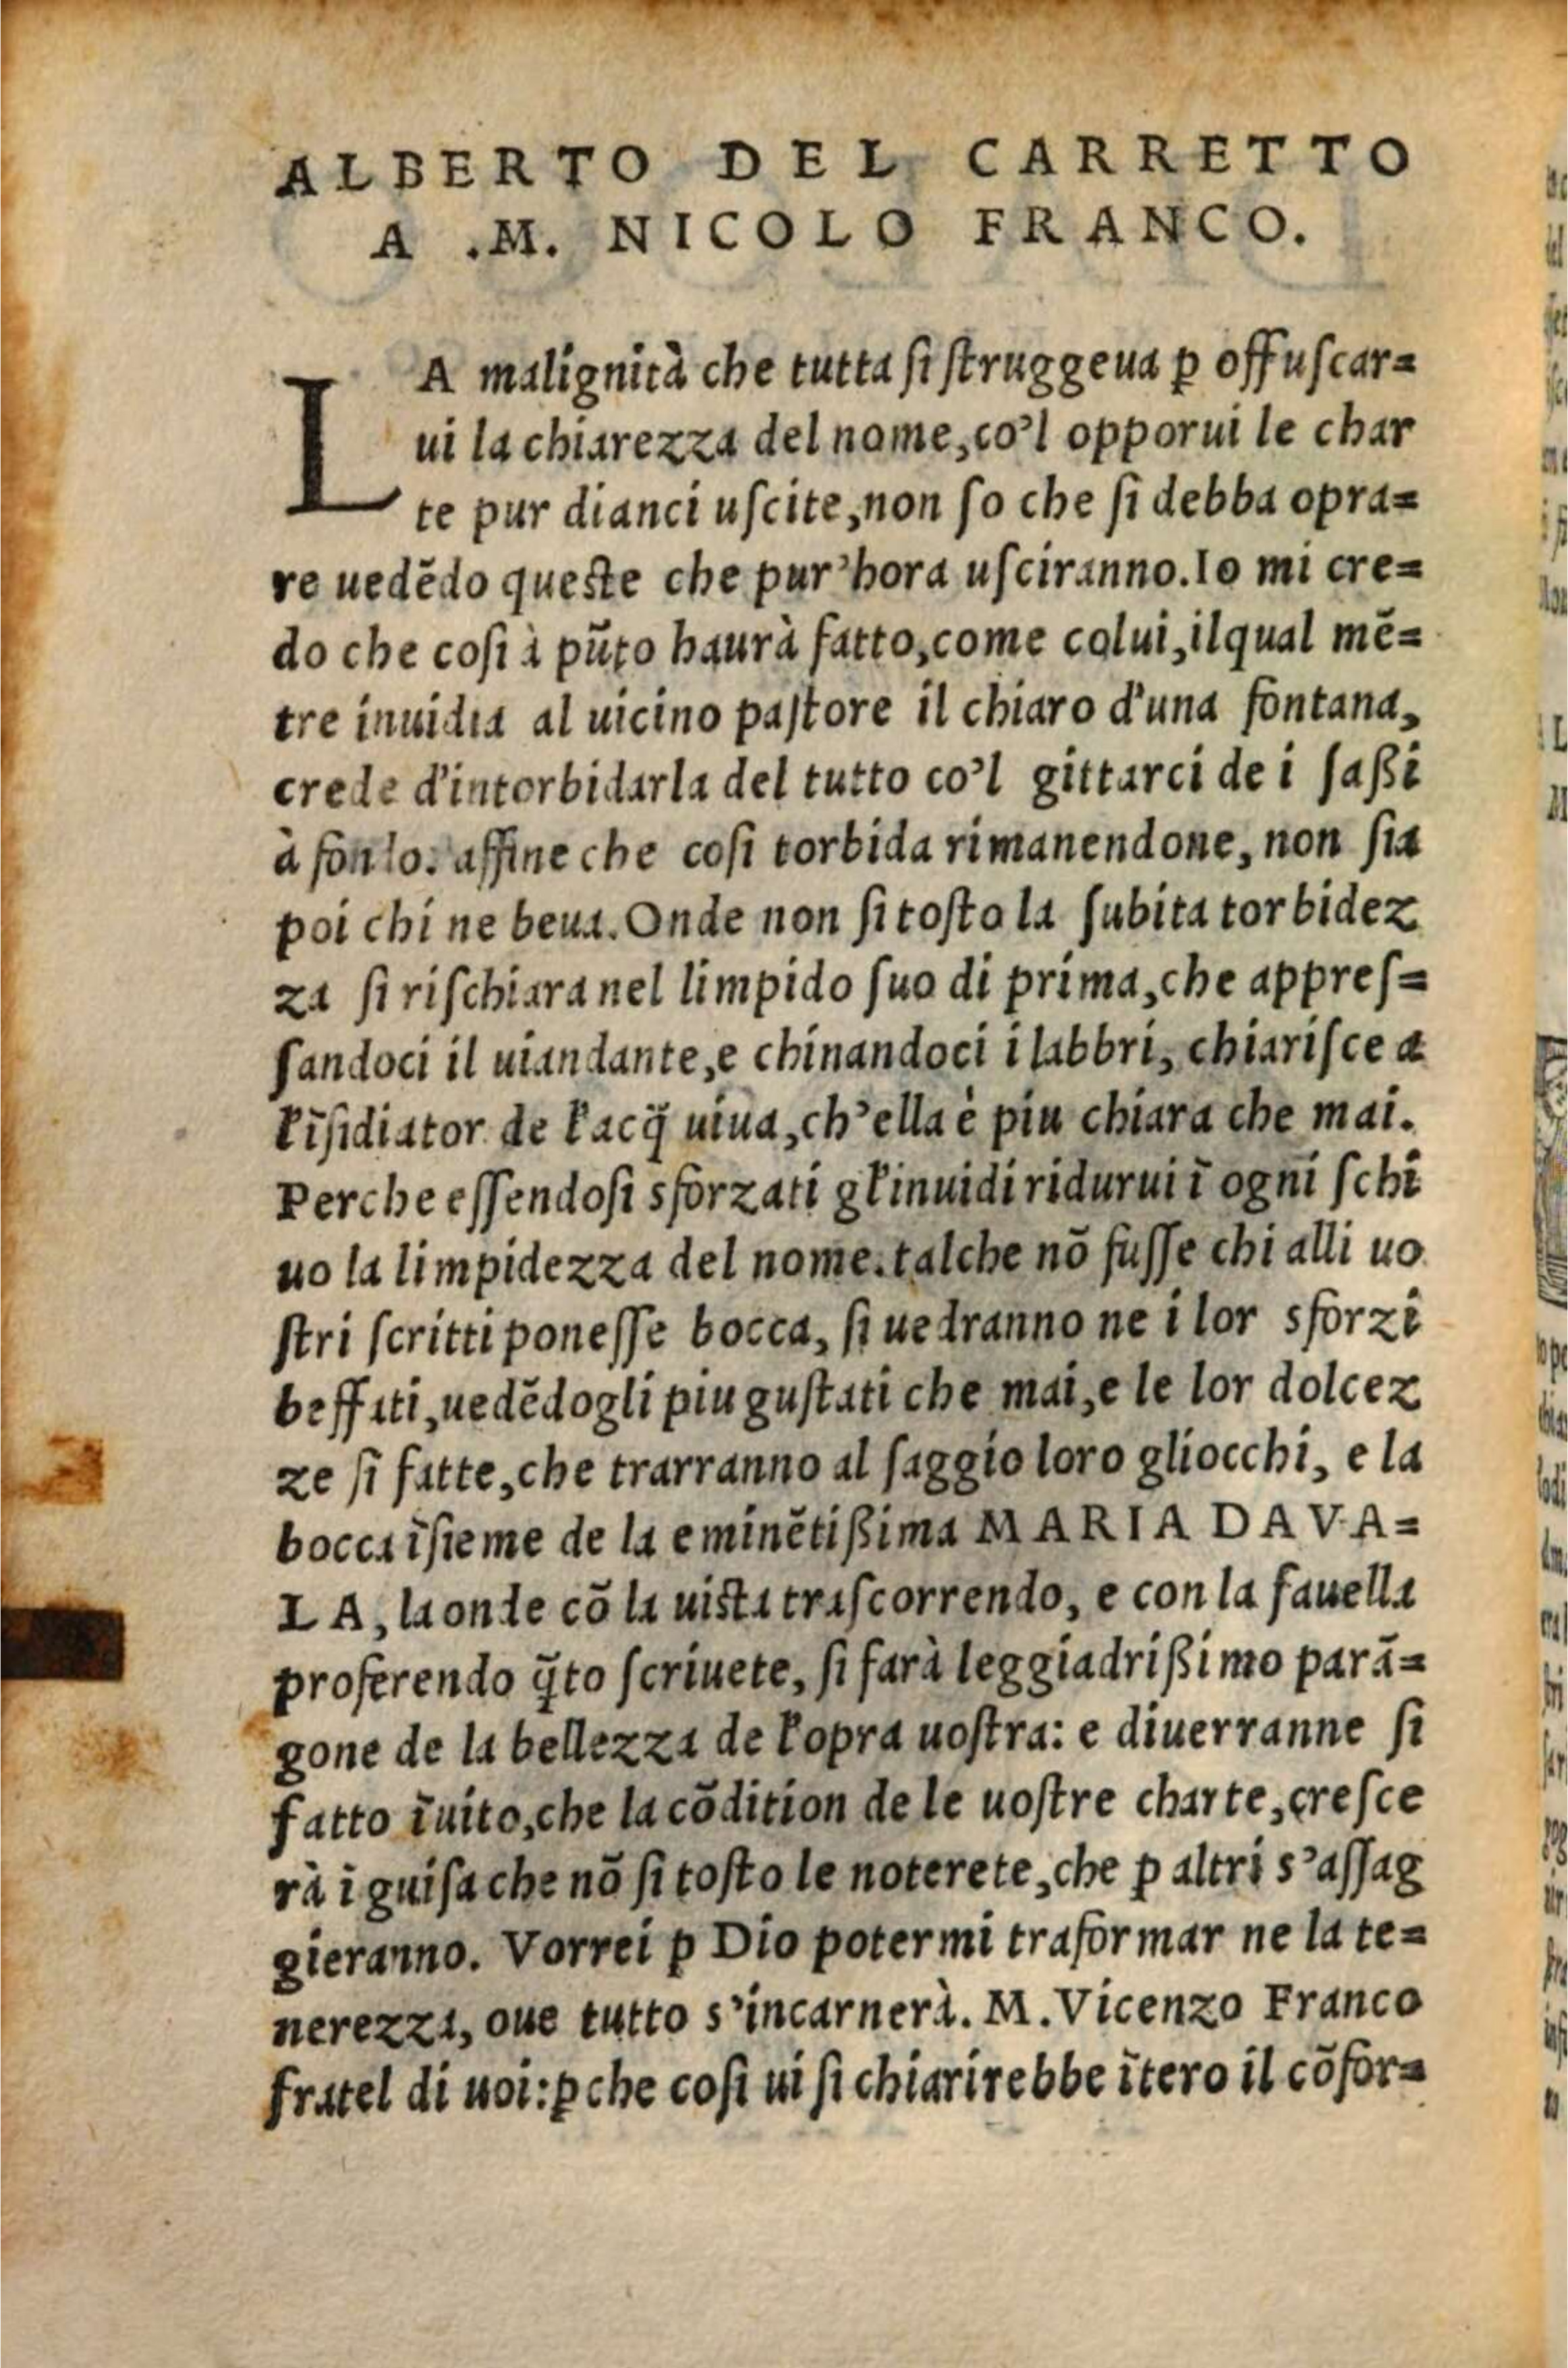 ALBERTO DEL CARRETTO
A .M. NICOLO FRANCO.
LA malignità che tutta ſi ſtruggeua ꝑ offuſcar=
ui la chiarezza del nome, co'l opporui le char
te pur dianci uſcite, non ſo che ſi debba opra=
re uedẽdo queſte che pur'hora uſciranno. Io mi cre=
do che coſi à pũto haurà fatto, come colui, ilqual mẽ=
tre inuidia al uicino paſtore il chiaro d'una fontana,
crede d'intorbidarla del tutto co'l gittarci de i ſaßi
à fondo. affine che coſi torbida rimanendone, non ſia
poi chi ne beua. Onde non ſi toſto la ſubita torbidez
za ſi riſchiara nel limpido ſuo di prima, che appreſ=
ſandoci il uiandante, e chinandoci i labbri, chiariſce a
l'ĩſidiator de l'acq̃ uiua, ch'ella è piu chiara che mai.
Perche eſſendoſi sforzati gl'inuidi ridurui ĩ ogni ſchi
uo la limpidezza del nome. talche nõ fuſſe chi alli uo
ſtri ſcritti poneſſe bocca, ſi uedranno ne i lor sforzi
beffati, uedẽdogli piu guſtati che mai, e le lor dolcez
ze ſi fatte, che trarranno al ſaggio loro gliocchi, e la
bocca ĩſieme de la eminẽtißima MARIA DAVA=
LA, la onde cõ la uiſta traſcorrendo, e con la fauella
proferendo q̃to ſcriuete, ſi farà leggiadrißimo parã=
gone de la bellezza de l'opra uoſtra: e diuerranne ſi
fatto ĩuito, che la cõdition de le uoſtre charte, creſce
rà ĩ guiſa che nõ ſi toſto le noterete, che ꝑ altri s'aſſag
gieranno. Vorrei ꝑ Dio potermi traformar ne la te=
nerezza, oue tutto s'incarnerà. M. Vicenzo Franco
fratel di uoi: ꝑche coſi ui ſi chiarirebbe ĩtero il cõfor=